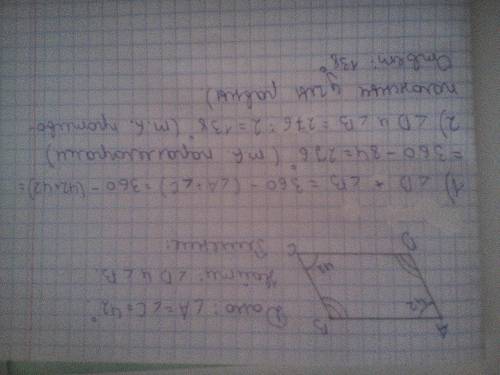 Дано: ∠A=∠C=42°
Найти: ∠D и ∠B.
Решение:
A
B
C
D
42
42
1) ∠D + ∠B = 360° - (∠A+∠C) = 360 - (42+42)=
= 360 - 84 = 276 (т.к. параллелограмм)
2) ∠D и ∠B = 276 : 2 = 138° (т.к. противо-
положные углы равны)
Ответ: 138°